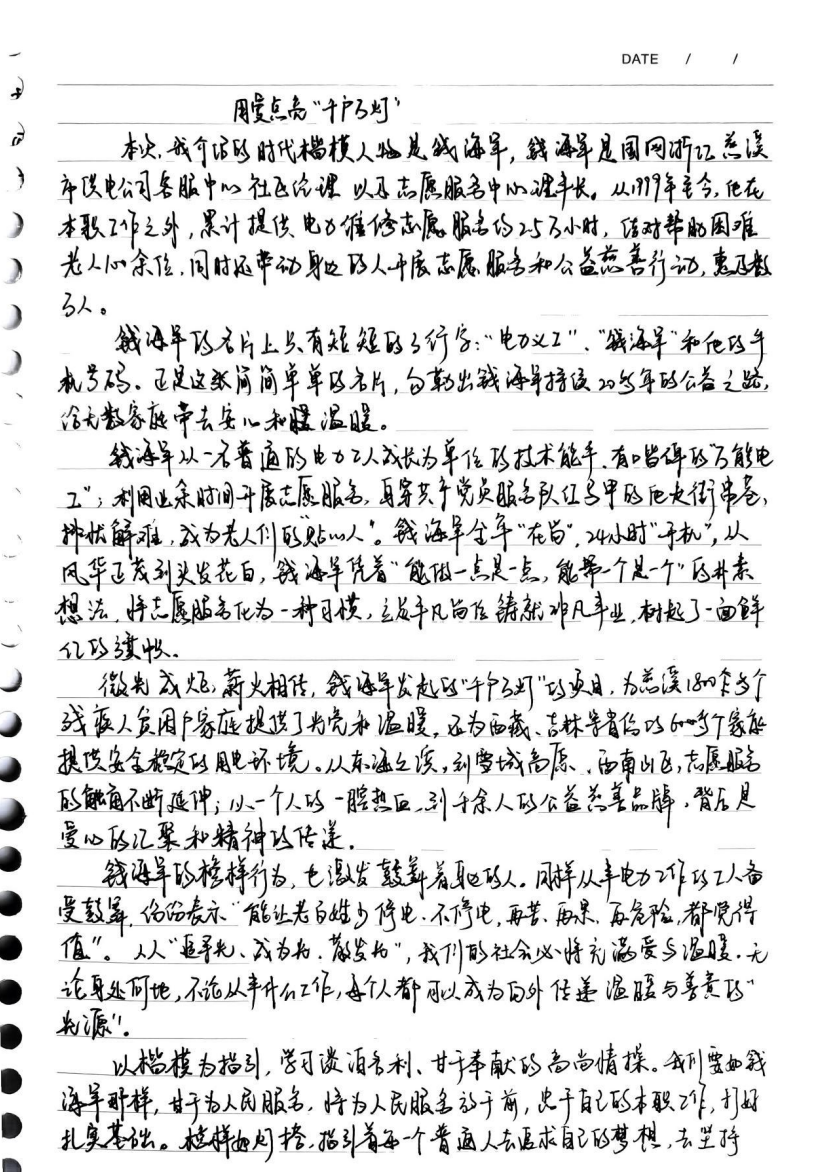 DATE / /
用爱点亮“千户万灯”
本次,我介绍的时代楷模人物是钱海军,钱海军是国网浙江慈溪
市供电公司客服中心社区经理以及志愿服务中心理事长。从1999年至今,他在
本职工作之外,累计提供电力维修志愿服务约2.5万小时,结对帮助困难
老人100余位,同时还带动身边的人开展志愿服务和公益慈善行动,惠及数
万人。
钱海军的名片上只有短短的3行字:“电力义工”、“钱海军”和他的手
机号码。正是这张简简单单的名片,勾勒出钱海军持续20多年的公益之路,
给无数家庭带去安心和暖温暖。
钱海军从一名普通的电力工人成长为单位的技术能手、有口皆碑的“万能电
工”;利用业余时间开展志愿服务,身穿共产党员服务队红马甲的他走街串巷,
排忧解难,成为老人们的“贴心人”。钱海军全年“在岗”,24小时“开机”,从
风华正茂到头发花白,钱海军凭着“能做一点是一点,能帮一个是一个”的朴素
想法,将志愿服务化为一种习惯,立足平凡岗位铸就非凡事业,树起了一面鲜
红的旗帜。
微光成炬,薪火相传,钱海军发起的“千户万灯”的项目,为慈溪1800余多个
残疾人贫困户家庭提供了光亮和温暖,还为西藏、吉林等省份的6000多个家庭
提供安全稳定的用电环境。从东海之滨,到雪域高原、西南山区,志愿服务
的触角不断延伸;从一个人的一腔热血,到千余人的公益慈善品牌,背后是
爱心的汇聚和精神的传递。
钱海军的榜样行为,也激发鼓舞着身边的人。同样从事电力工作的工人备
受鼓舞,纷纷表示“能让老百姓少停电、不停电,再苦、再累、再危险,都觉得
值”。人人“追寻光、成为光、散发光”,我们的社会必将充满爱与温暖。无
论身处何地,不论从事什么工作,每个人都可以成为向外传递温暖与善意的“
光源”。
以楷模为指引,学习淡泊名利、甘于奉献的高尚情操。我们要如钱
海军那样,甘于为人民服务,将为人民服务放于前,忠于自己的本职工作,打好
扎实基础。榜样如灯塔,指引着每一个普通人去追求自己的梦想,去坚持